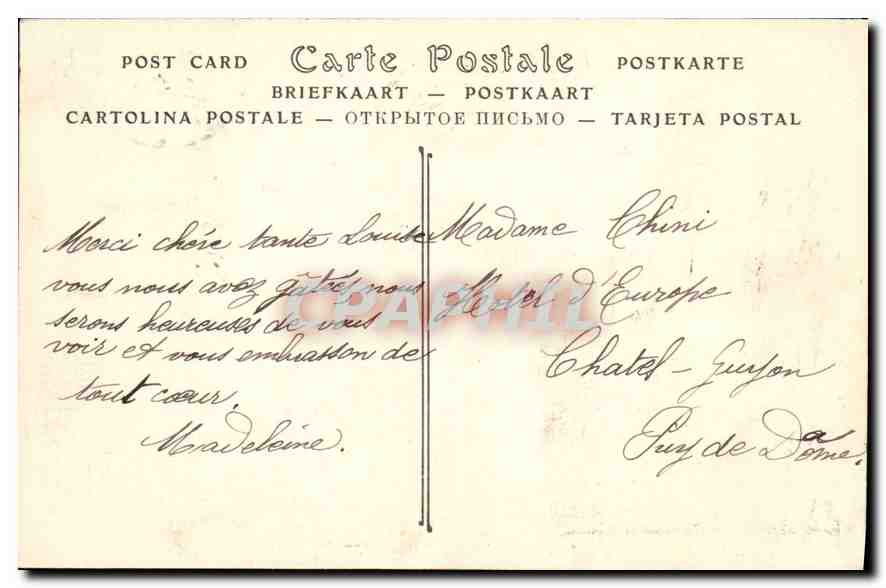 POST CARD Carte Postale POSTKARTE
BRIEFKAART — POSTKAART
CARTOLINA POSTALE — ОТКРЫТОЕ ПИСЬМО — TARJETA POSTAL
Merci chère tante Louise
vous nous avez gâtées nous
serons heureuses de vous
voir et vous embrasson de
tout cœur.
Madeleine.
Madame Chini
Hotel d'Europe
Chatel-Guyon
Puy de Dome.
CPAPHIL